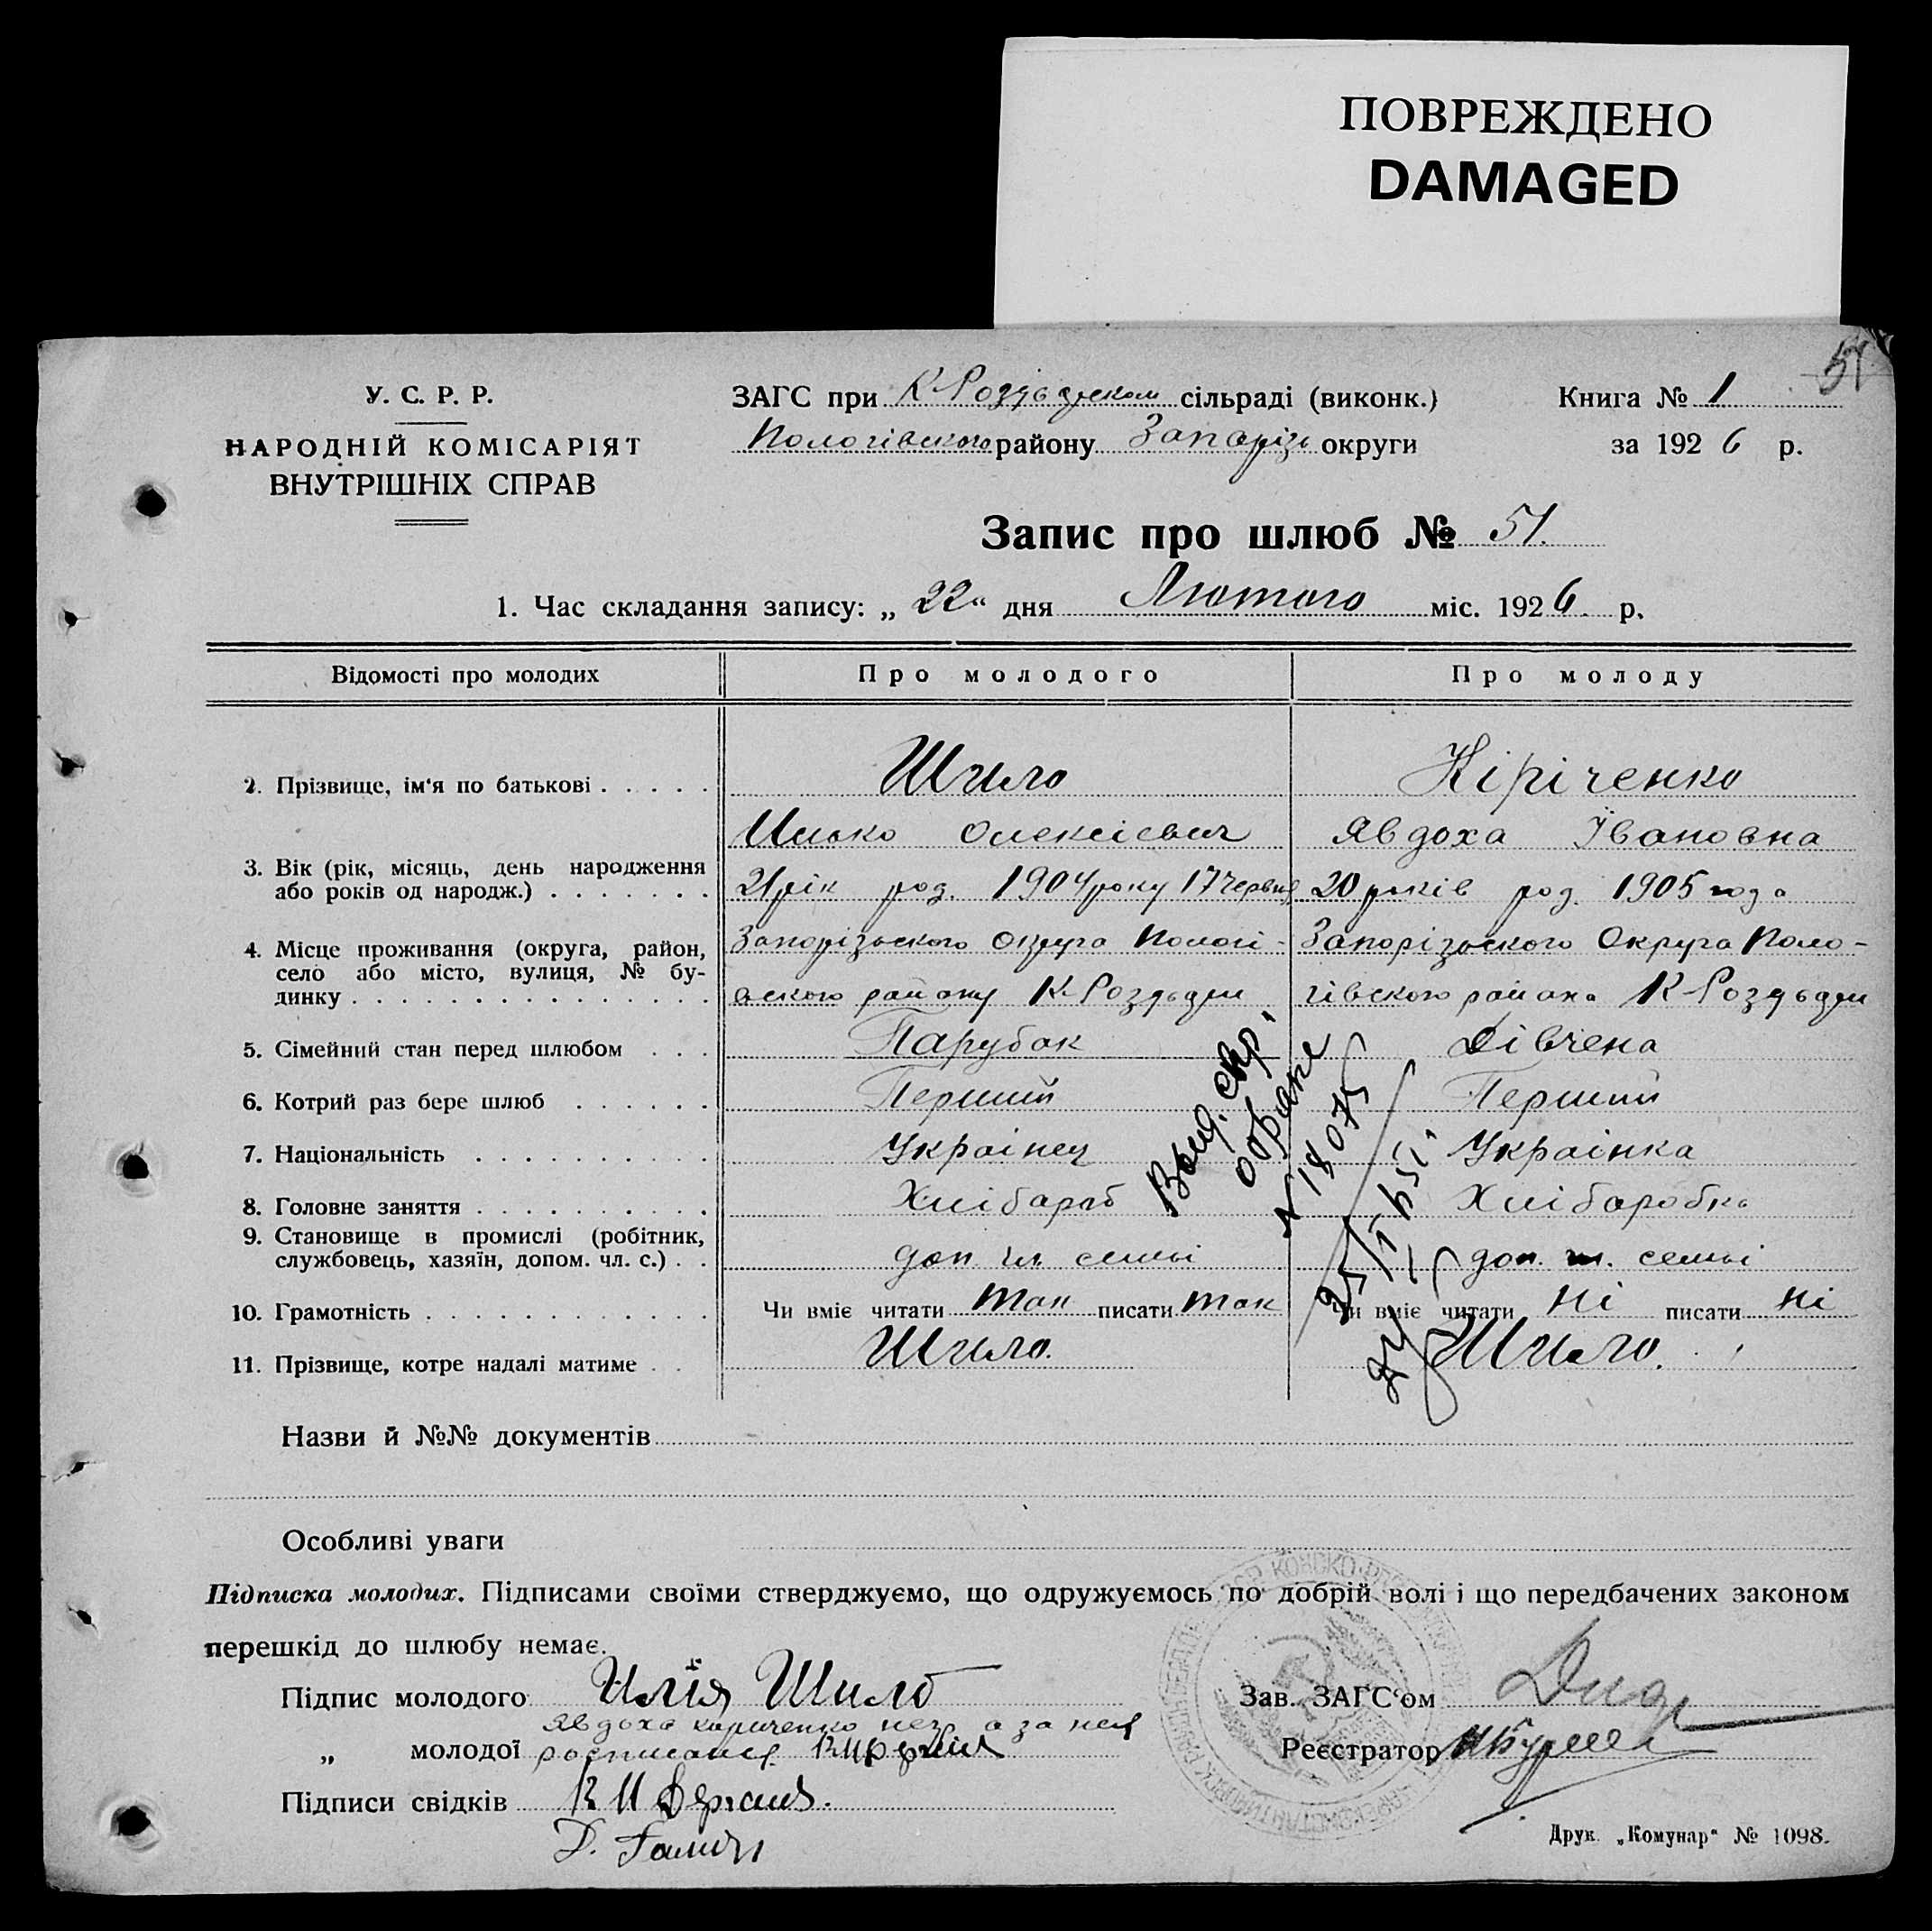 ПОВРЕЖДЕНО
DAMAGED
51
У. С. Р. Р.
НАРОДНІЙ КОМІСАРІЯТ
ВНУТРІШНІХ СПРАВ
ЗАГС при К-Роздьорском сільраді (виконк.)
Пологівского району Запоріз округи
Книга № 1
за 1926 р.
Запис про шлюб № 51.
1. Час складання запису: „ 22 “ дня Лютого міс. 1926 р.
Відомості про молодих Про молодого Про молоду
2. Прізвище, ім'я по батькові . . . . . Шило Кіріченко
Илько Олексієвич Явдоха Івановна
3. Вік (рік, місяць, день народження
або років од народж.) . . . . . . . 21 рік род. 1904 року 17 червня 20 років род. 1905 года
4. Місце проживання (округа, район,
село або місто, вулиця, № бу-
динку . . . . . . . . . . . . . . . .
Запорізьского Округа Пологі-
вского району К-Роздьори
Запорізьского Округа Поло-
гівского района К-Роздьори
5. Сімейний стан перед шлюбом . . . Парубак Дівчена
6. Котрий раз бере шлюб . . . . . . Перший Перший
7. Національність . . . . . . . . . . Украінец Украінка
8. Головне заняття . . . . . . . . . . Хлібароб Хлібаробка
9. Становище в промислі (робітник,
службовець, хазяїн, допом. чл. с.) . . доп. чл. семьі доп. чл. семьі
10. Грамотність . . . . . . . . . . . . Чи вміє читати так писати так Чи вміє читати ні писати ні
11. Прізвище, котре надалі матиме . . Шило. Шило.
о браке
N 18075
Назви й №№ документів
Особливі уваги
Підписка молодих. Підписами своїми стверджуємо, що одружуємось по добрій волі і що передбачених законом
перешкід до шлюбу немає.
Підпис молодого Илія Шило
Явдоха Кириченко а за неї
„ молодої росписался
Підписи свідків К И
Д.
Зав. ЗАГС'ом
Реєстратор
Друк. „Комунар“ № 1098.